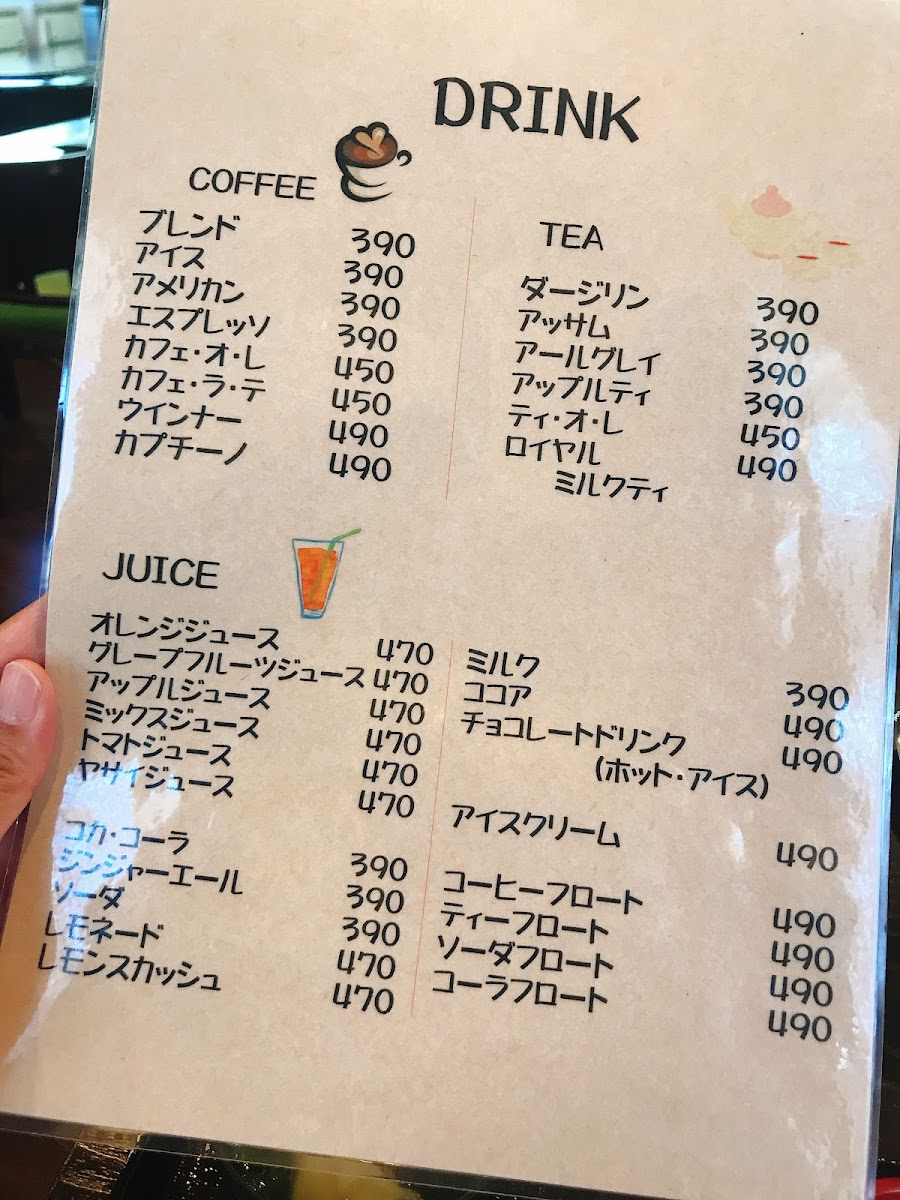 DRINK
COFFEE
ブレンド 390
アイス 390
アメリカン 390
エスプレッソ 390
カフェ・オ・レ 450
カフェ・ラ・テ 450
ウインナー 490
カプチーノ 490
TEA
ダージリン 390
アッサム 390
アールグレイ 390
アップルティ 390
ティ・オ・レ 450
ロイヤル 490
ミルクティ
JUICE
オレンジジュース 470
グレープフルーツジュース 470
アップルジュース 470
ミックスジュース 470
トマトジュース 470
ヤサイジュース 470
コカ・コーラ 390
ジンジャーエール 390
ソーダ 390
レモネード 470
レモンスカッシュ 470
ミルク 390
ココア 490
チョコレートドリンク 490
(ホット・アイス)
アイスクリーム 490
コーヒーフロート 490
ティーフロート 490
ソーダフロート 490
コーラフロート 490